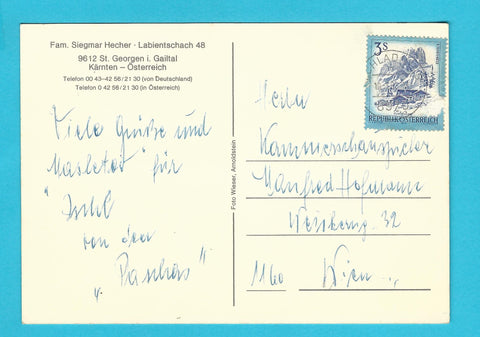 Fam. Siegmar Hecher · Labientschach 48
9612 St. Georgen i. Gailtal
Kärnten – Österreich
Telefon 00 43–42 56/21 30 (von Deutschland)
Telefon 0 42 56/21 30 (in Österreich)
Viele Grüße und
für
von den
Foto Wieser, Arnoldstein
3 S
REPUBLIK ÖSTERREICH
Herrn
Kammerschauspieler
Manfred Hofmann
32
1160 Wien